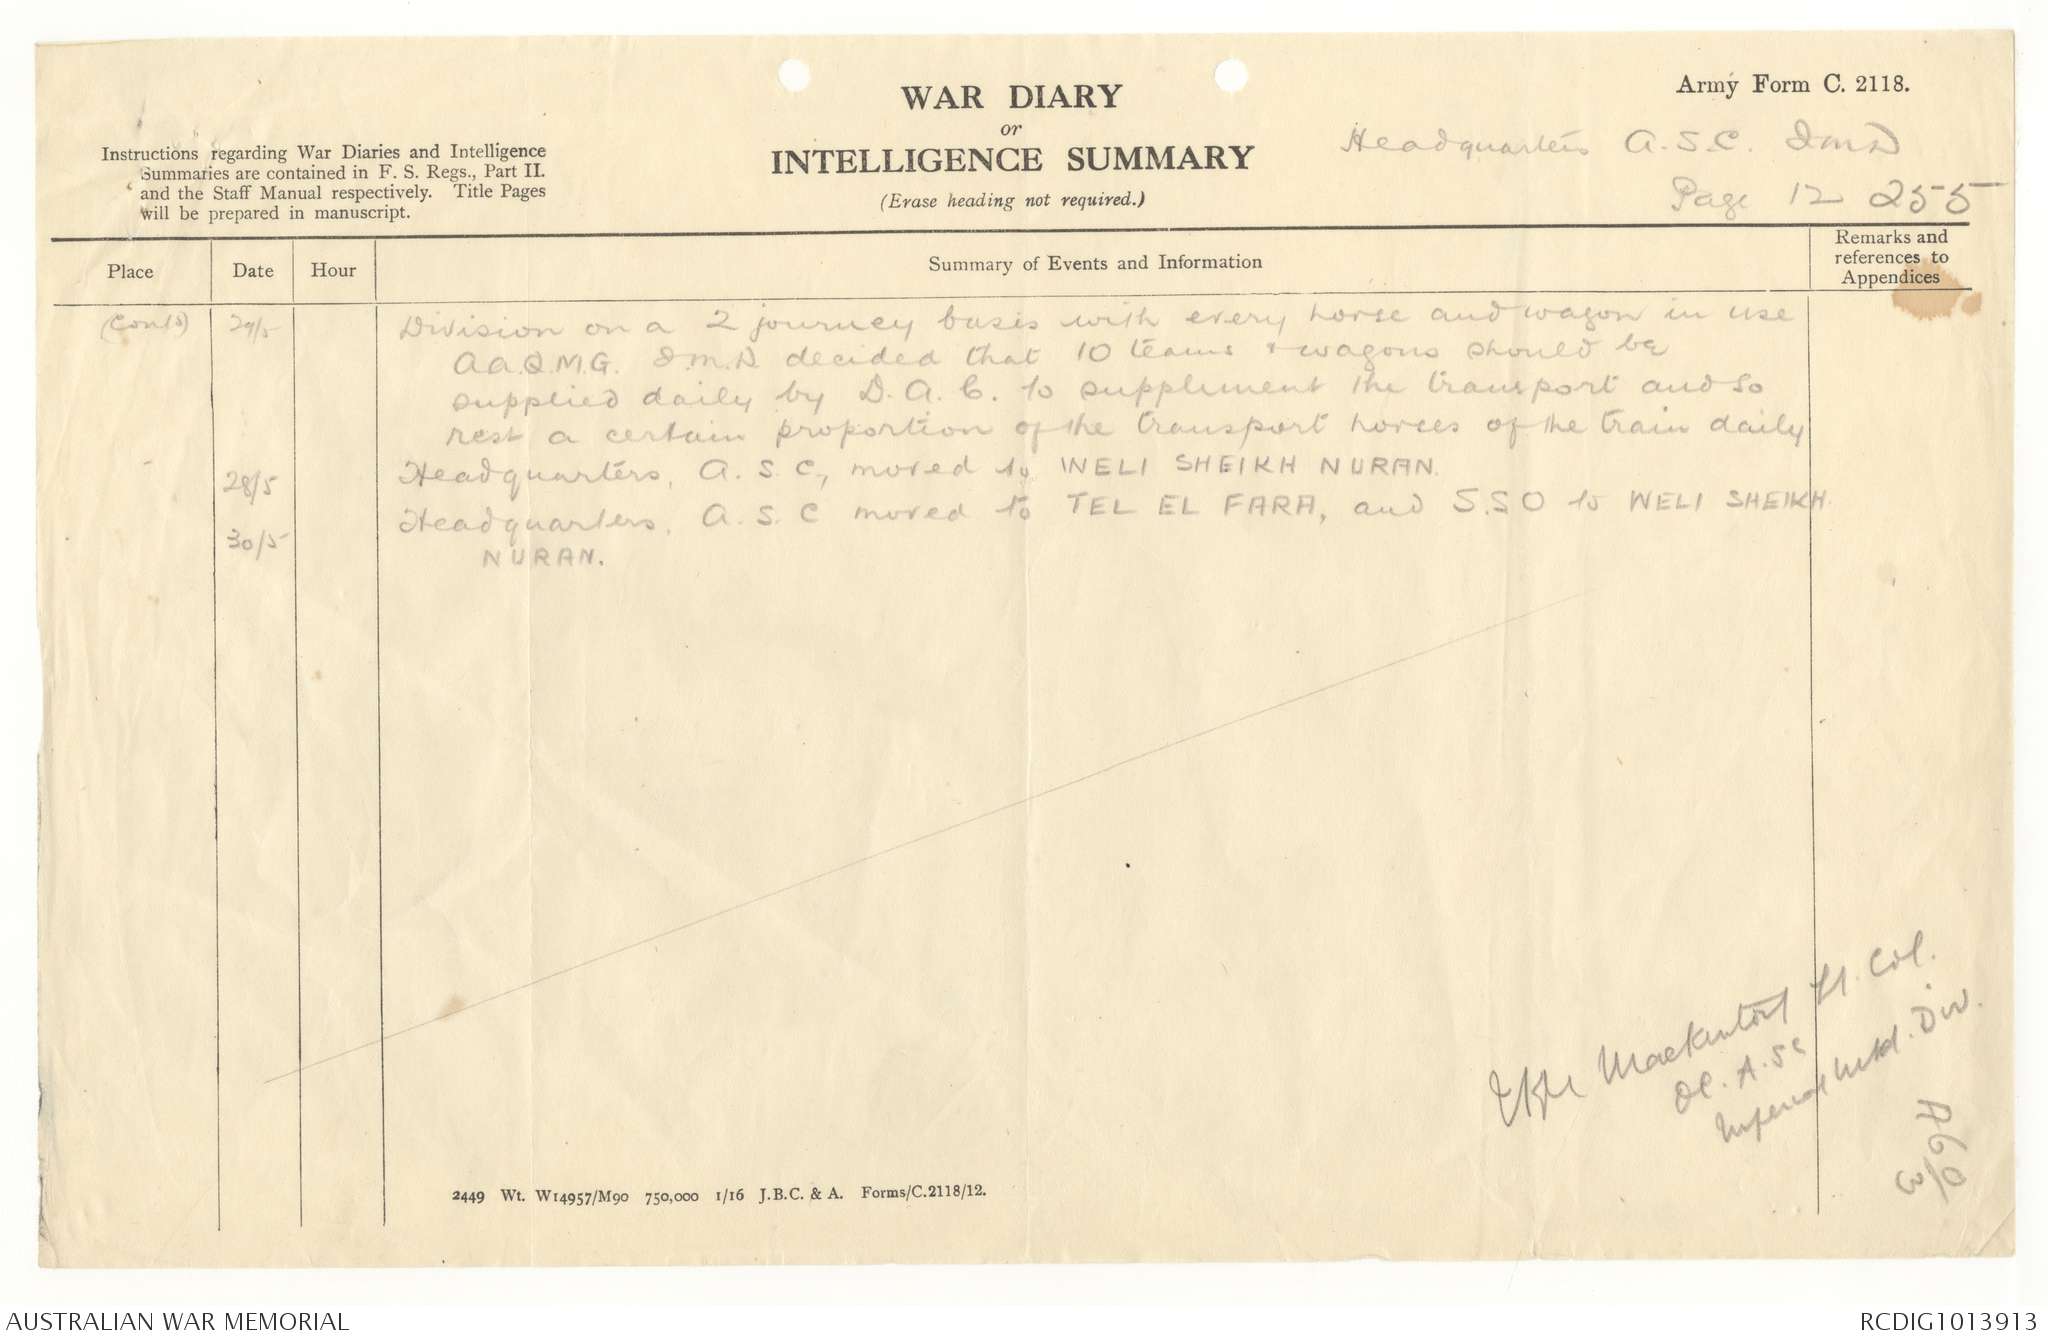 WAR DIARY
or
INTELLIGENCE SUMMARY
(Erase heading not required.)
Army Form C. 2118.
Instructions regarding War Diaries and Intelligence
Summaries are contained in F. S. Regs., Part II.
and the Staff Manual respectively. Title Pages
will be prepared in manuscript.
Headquarters A.S.C. I.M.D
Page 12 255
Place Date Hour Summary of Events and Information Remarks and references to Appendices
(Contd) 29/5 Division on a 2 journey basis with every horse and wagon in use
AA.Q.M.G. I.M.D. decided that 10 teams & wagons should be
supplied daily by D.A.C. to suppliment the transport and so
rest a certain proportion of the transport horses of the train daily
28/5 Headquarters, A.S.C, moved to WELI SHEIKH NURAN.
30/5 Headquarters, A.S.C moved to TEL EL FARA, and S.S.O to WELI SHEIKH
NURAN.
Mackintosh Lt. Col.
OC. A.SC
Imperial Mtd. Div.
2449 Wt. W14957/M90 750,000 1/16 J.B.C. & A. Forms/C.2118/12.
AUSTRALIAN WAR MEMORIAL
RCDIG1013913